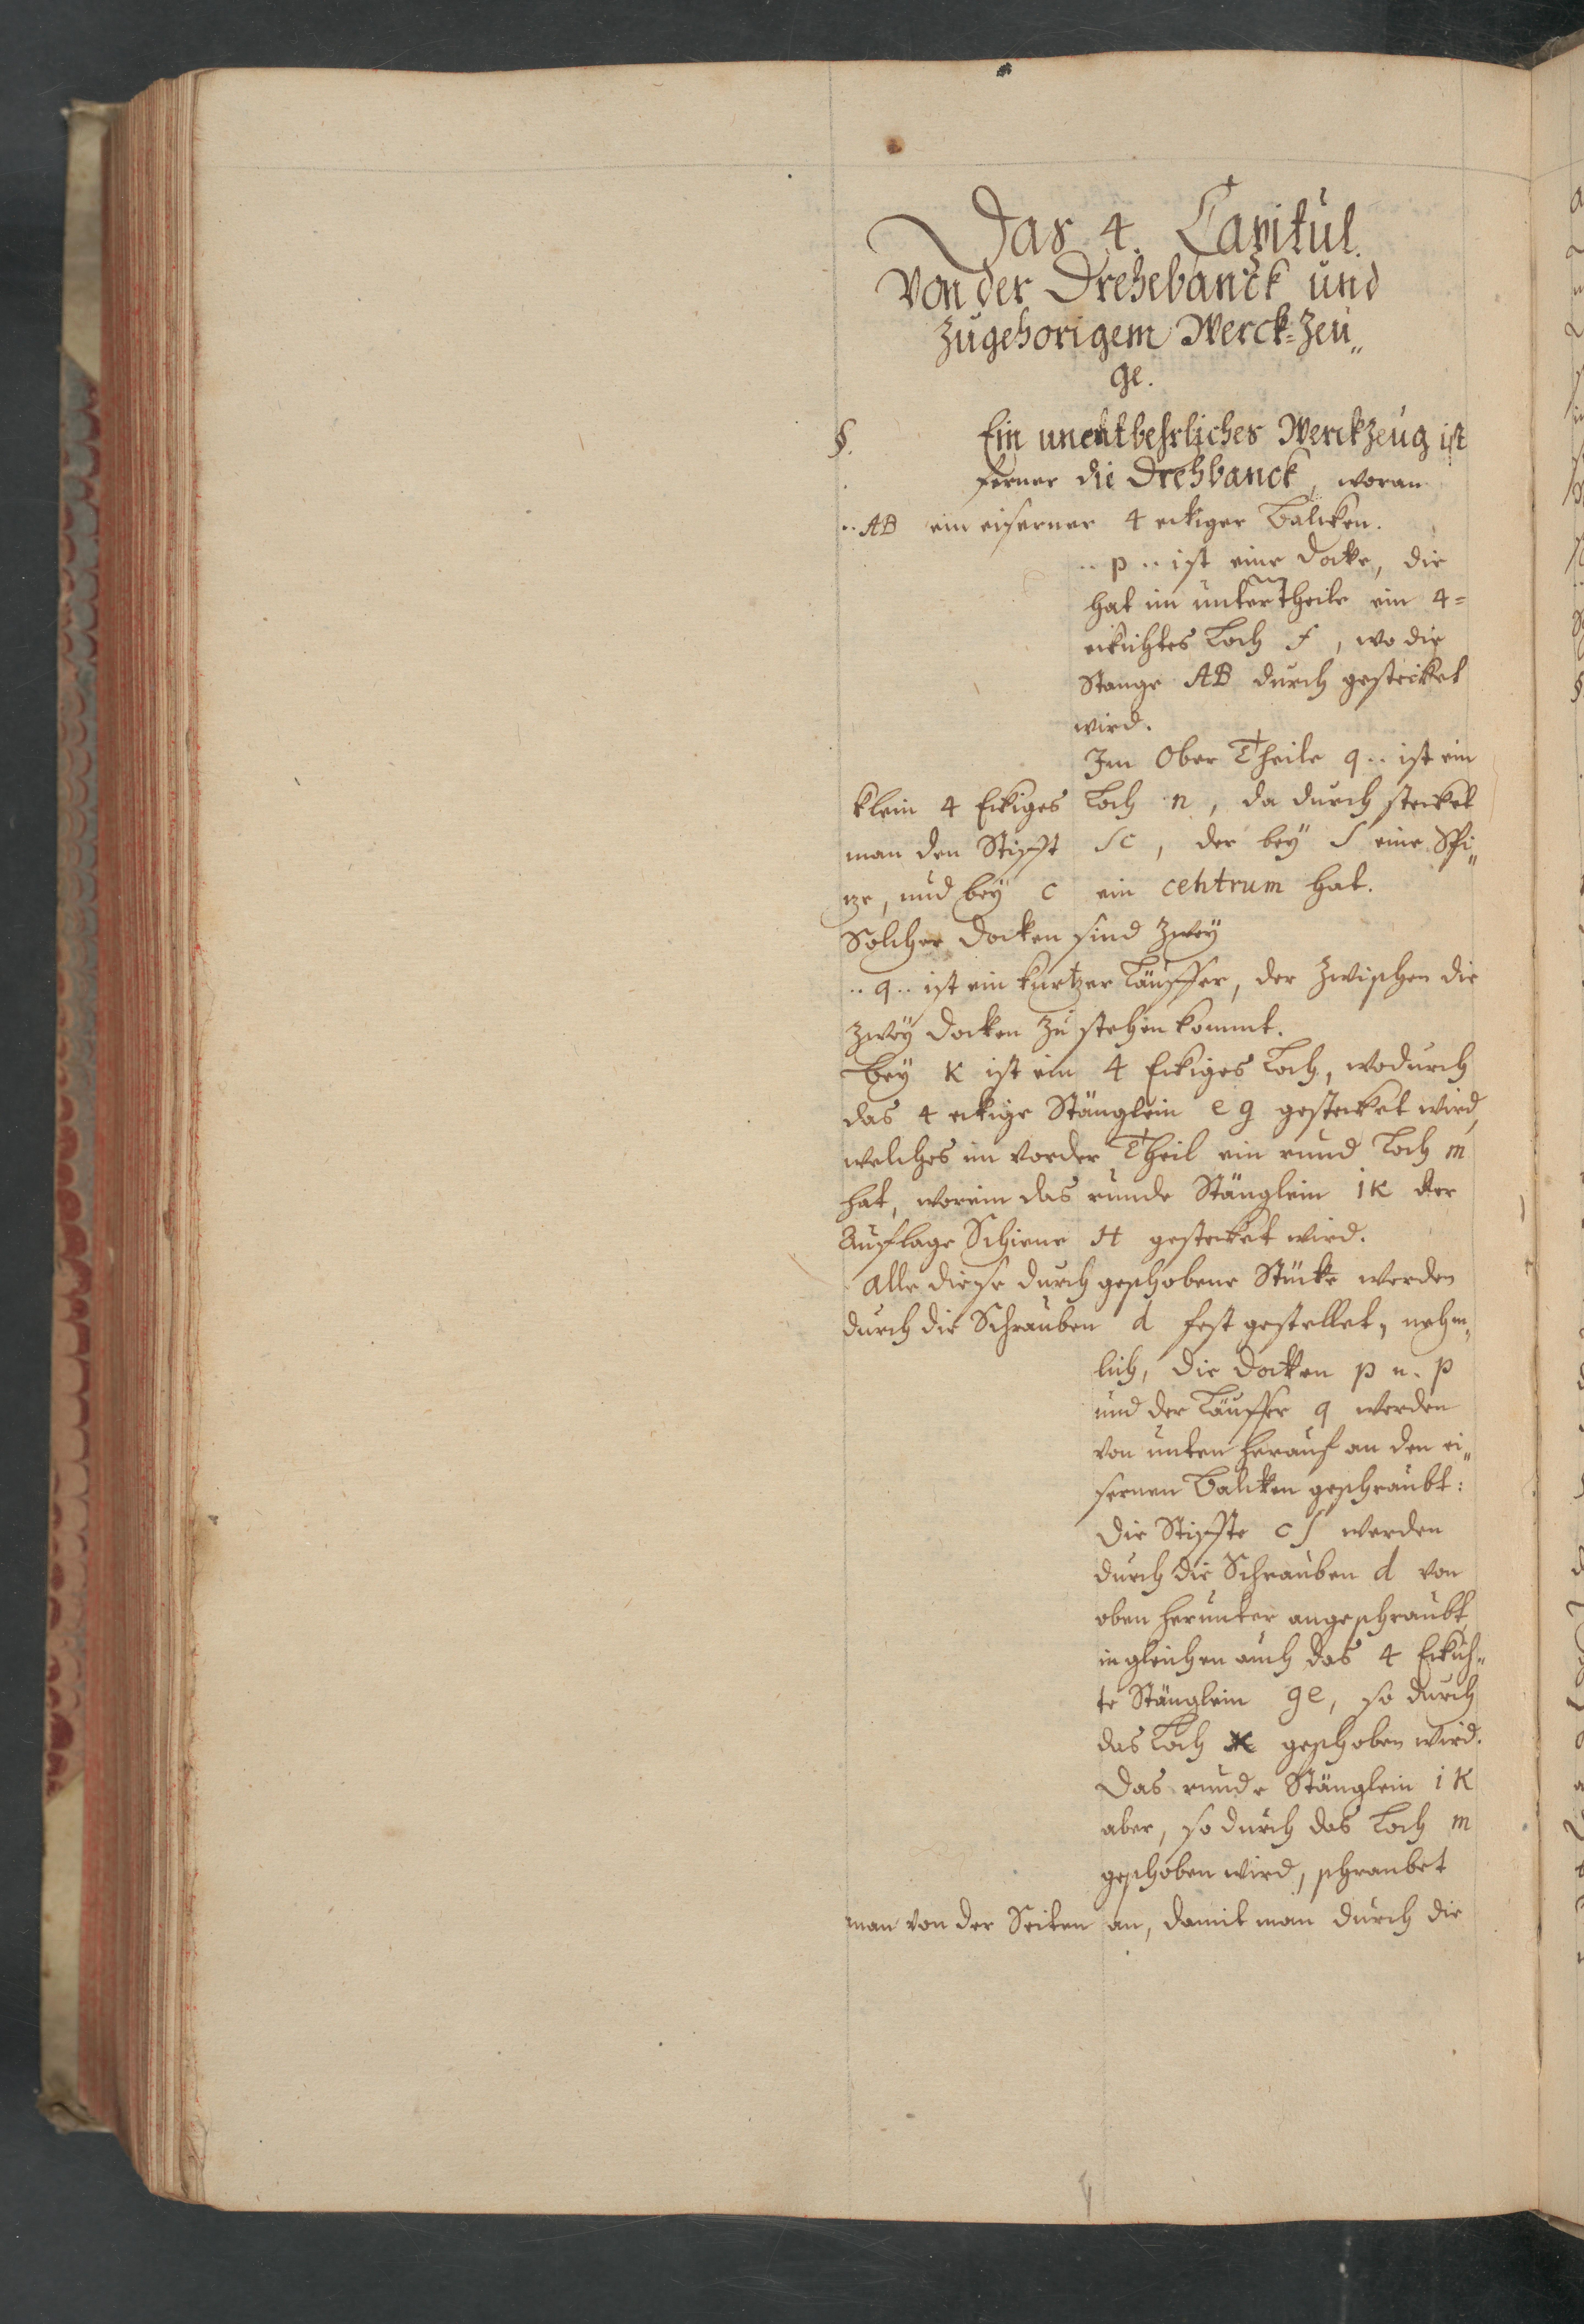 Das 4. Capitul.
Von der Drehebanck und
zugehorigem Werck-Zeu„
ge.
§. Ein unentbehrliches Werckzeug ist
ferner die Drehbanck, woran
.. AB ein eiserner 4 eckiger Balcken.
.. p .. ist eine Docke, die
hat im unter Theile ein 4=
eckichtes Loch f, wo die
Stange AB durch gestecket
wird.
Im Ober Theile q .. ist ein
klein 4 Eckiges Loch n, da durch stecket
man den Stifft sc, der bey s eine Spi„
tze, und bey c ein centrum hat.
Solcher Docken sind zwey
.. q .. ist ein kurtzer Läuffer, der zwischen die
zwey Docken zu stehen kommt.
bey K ist ein 4 Eckiges Loch, wodurch
das 4 eckige Stänglein e g gestecket wird,
welches im vorder Theil ein rund Loch m
hat, worein das runde Stänglein i K der
Aufflage Schiene H gestecket wird.
Alle diese durch geschobene Stücke werden
durch die Schrauben d fest gestellet, nehm„
lich, die Docken p u. p
und der Läuffer q werden
von unten herauf an den ei„
sernen Balcken geschraubt:
Die Stiffte c s werden
durch die Schrauben d von
oben herunter angeschraubt,
ingleichen auch das 4 Eckich„
te Stänglein g e, so durch
das Loch K geschoben wird.
Das runde Stänglein i K
aber, so durch das Loch m
geschoben wird, schraubet
man von der Seiten an, damit man durch die